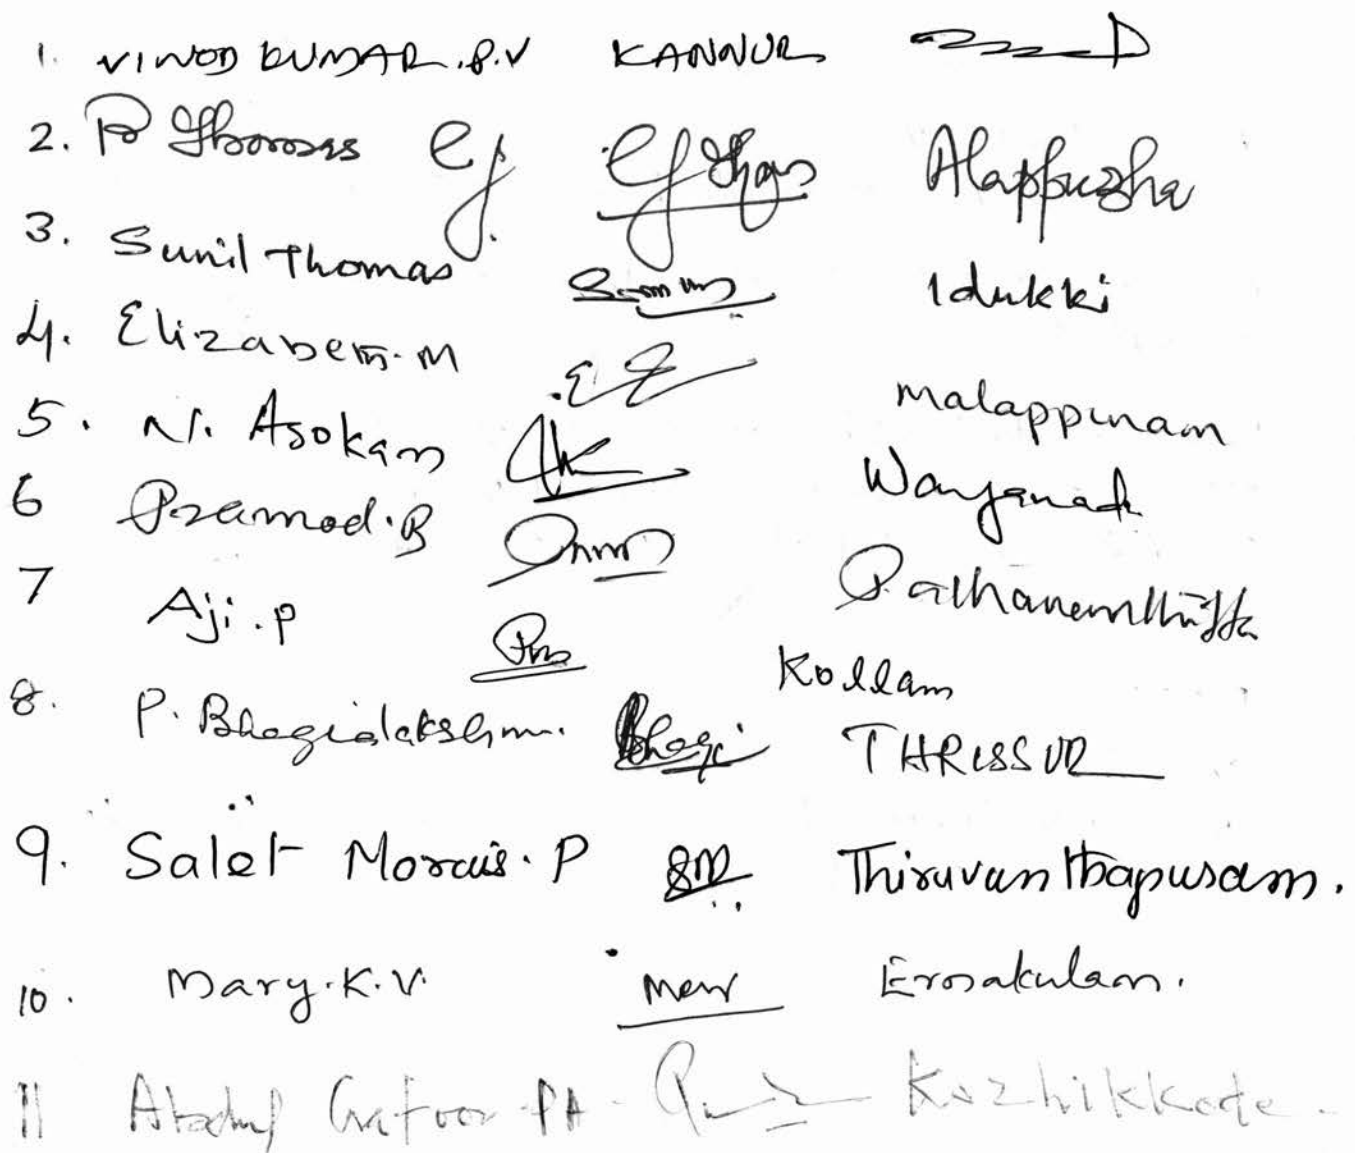 1. VINOD KUMAR. P.V KANNUR
2. P Thomas EJ Alappuzha
3. Sunil Thomas Idukki
4. Elizabeth. M Malappuram
5. N. Asokan Wayanad
6 Pramod. B Pathanamthitta
7 Aji. P Kollam
8. P. Bhagialakshmi. Bhagi THRISSUR
9. Salet Morais. P SM Thiruvananthapuram.
10. Mary. K. V. Mary Ernakulam.
11 Abdul Gafoor PA Kozhikkode.